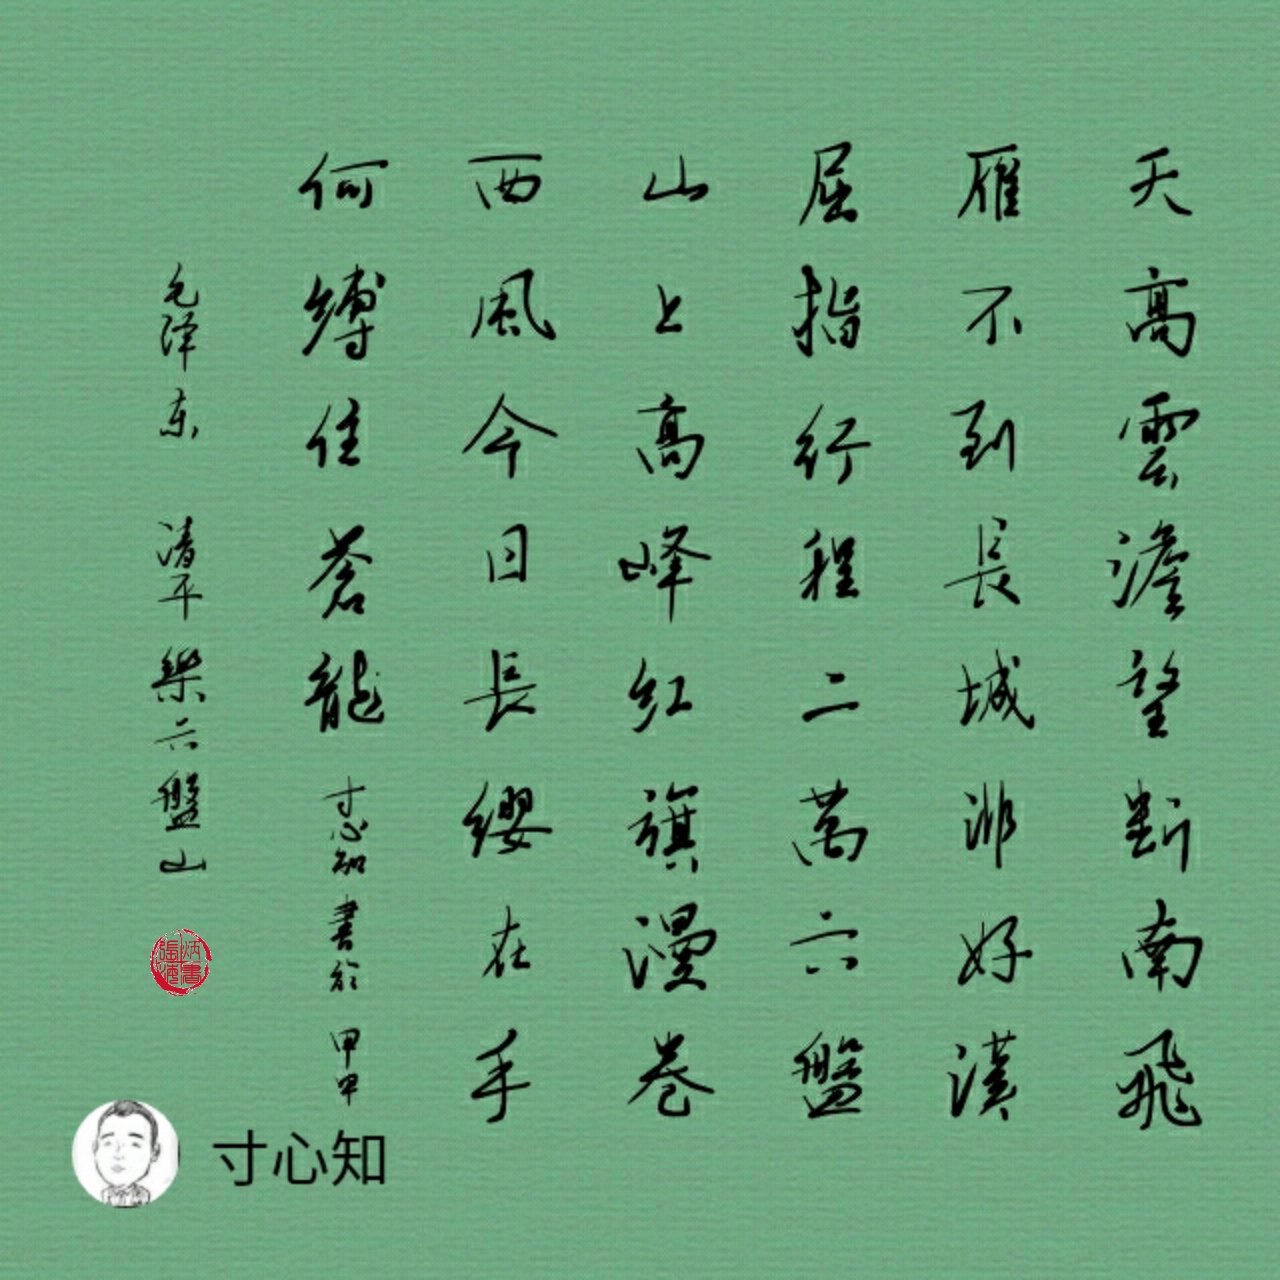 天高雲澹望断南飛
雁不到長城非好漢
屈指行程二萬六盤
山上高峰红旗漫卷
西風今日長缨在手
何縛住蒼龍 寸心知書於甲申
毛泽东 清平樂六盤山
寸心知